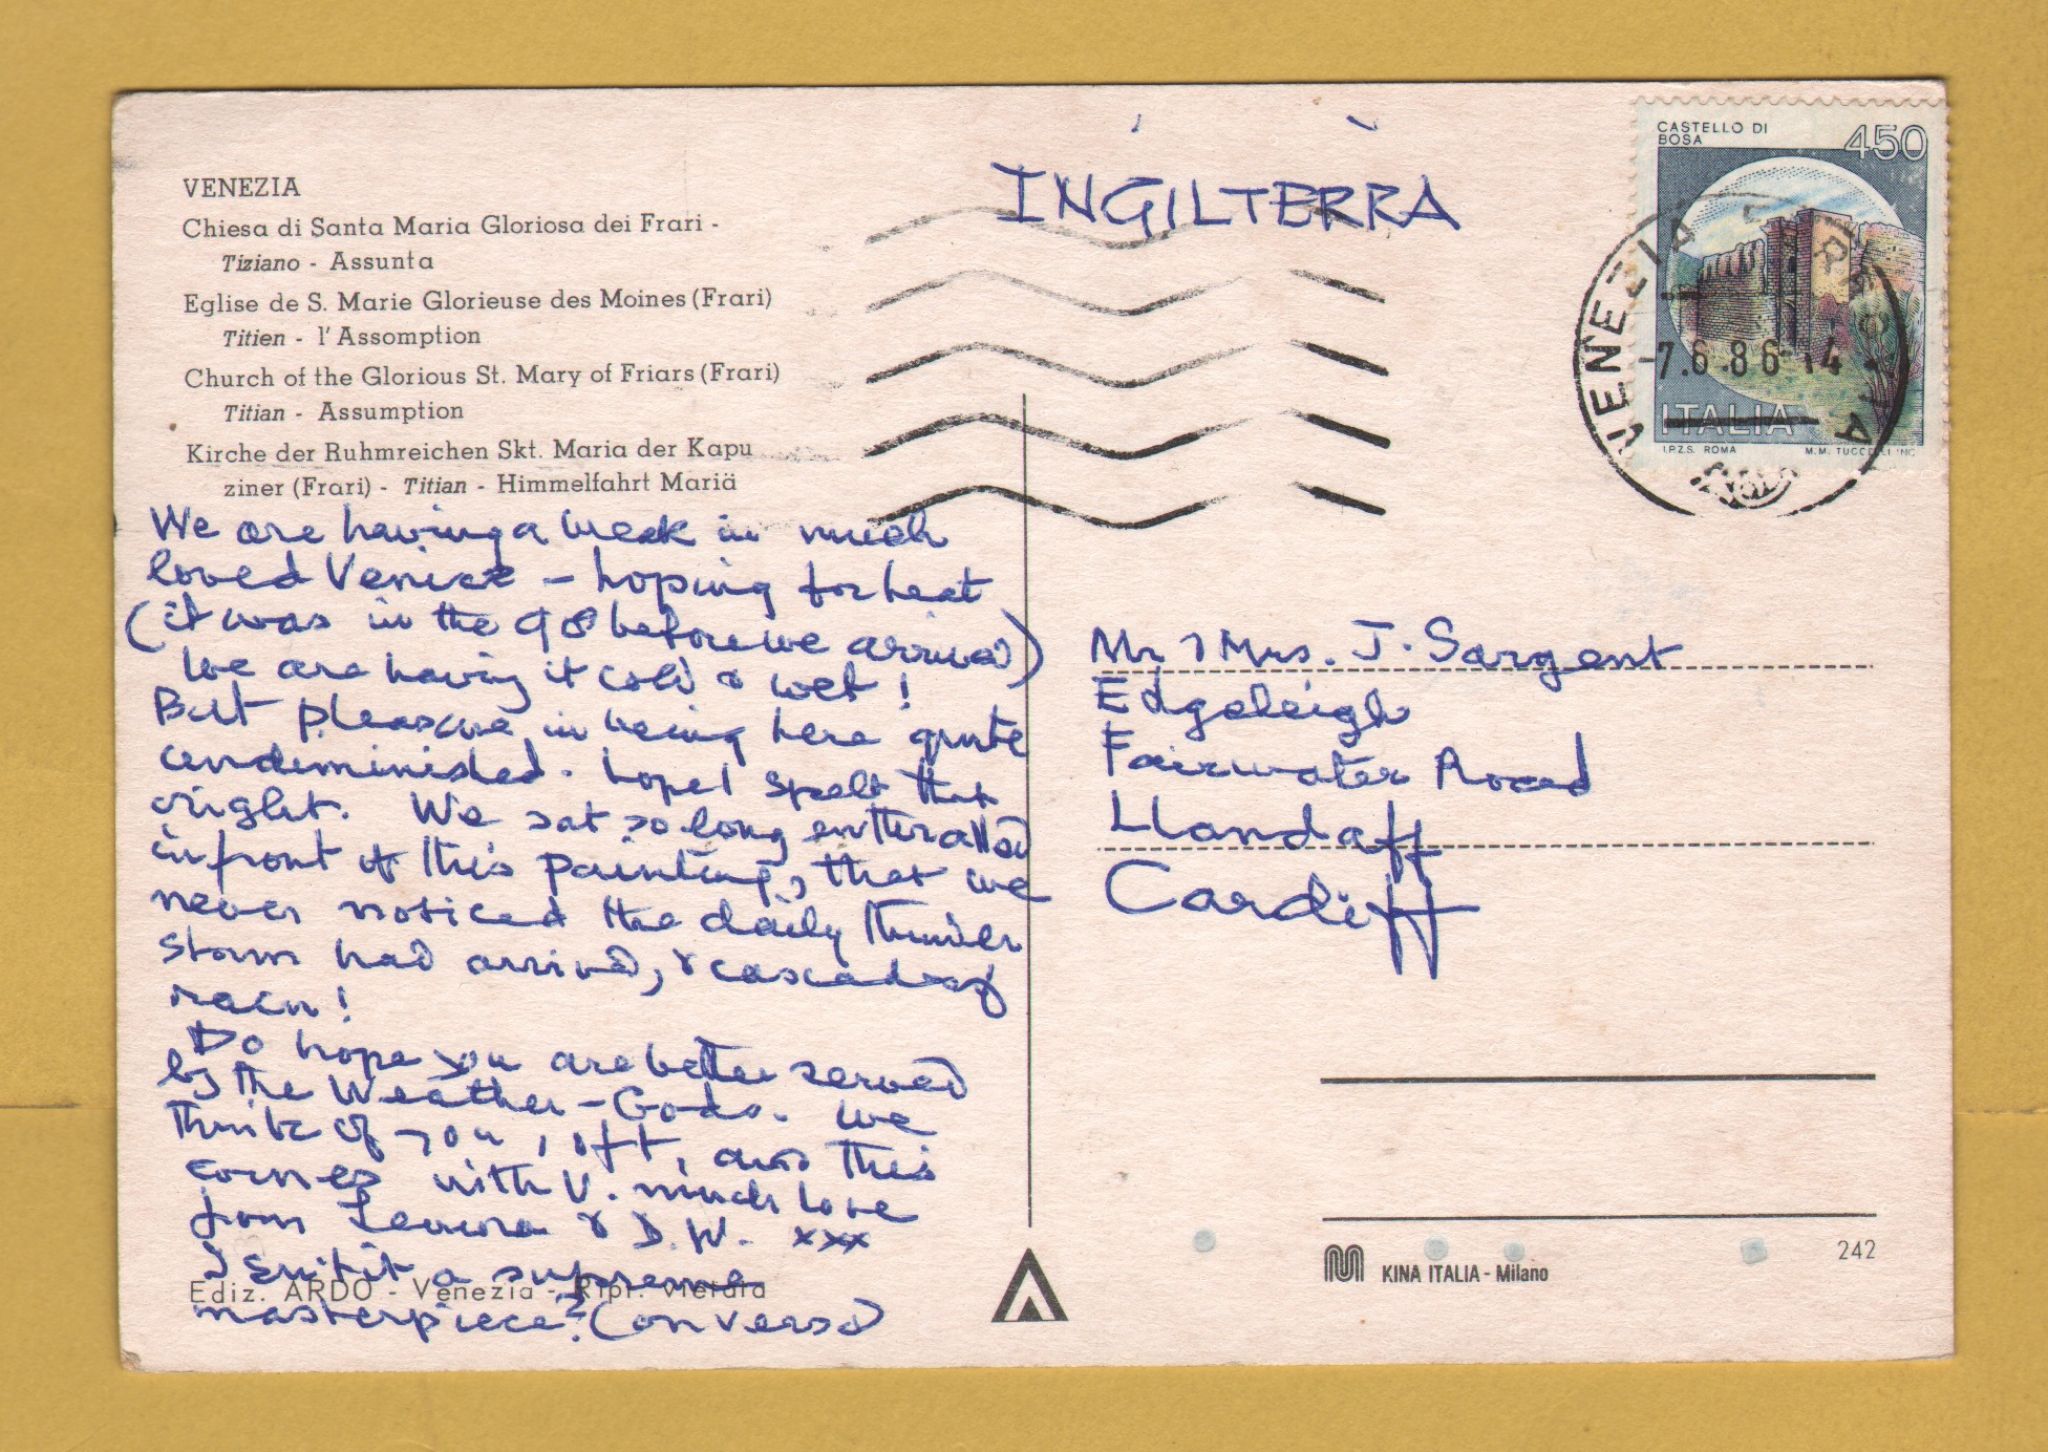 VENEZIA
Chiesa di Santa Maria Gloriosa dei Frari -
Tiziano - Assunta
Eglise de S. Marie Glorieuse des Moines (Frari)
Titien - l'Assomption
Church of the Glorious St. Mary of Friars (Frari)
Titian - Assumption
Kirche der Ruhmreichen Skt. Maria der Kapu
ziner (Frari) - Titian - Himmelfahrt Mariä
We are having a week in much
loved Venice - hoping for heat
(it was in the 90s before we arrived)
We are having it cold & wet!
But pleasure in being here quite
undeminished. hope I spelt that
right. We sat so long enthralled
in front of this painting, that we
never noticed the daily thunder
storm had arrived, & cascades of
rain!
Do hope you are better served
by the Weather-Gods. We
think of you, oft, and this
comes with V. much love
from & D.W. xxx
Isn't it a supreme
masterpiece? (on verso)
Ediz. ARDO - Venezia - Ripr. vietata
INGILTERRA
CASTELLO DI
BOSA
450
ITALIA
I.P.Z.S. ROMA
VENEZIA
-7.6.86-14
Mr & Mrs. J. Sargent
Edgeleigh
Fairwater Road
Llandaff
Cardiff
KINA ITALIA - Milano
242